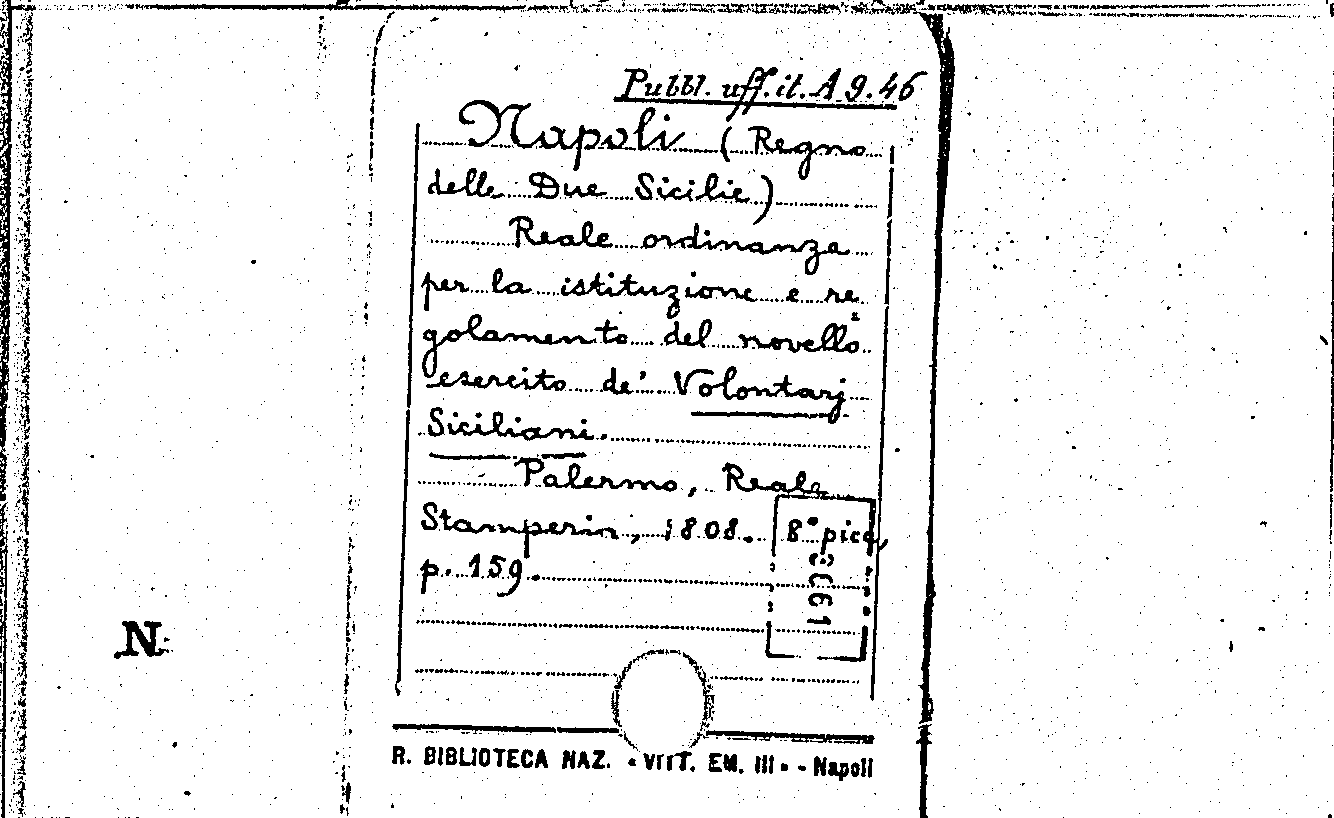 Pubbl. uff. it. A 9. 46
Napoli (Regno
delle Due Sicilie)
Reale ordinanza
per la istituzione e re
golamento del novello
esercito de' Volontarj
Siciliani.
Palermo, Reale
Stamperia, 1808. 8° picc,
p. 159.
N
R. BIBLIOTECA NAZ. «VITT. EM. III» - Napoli